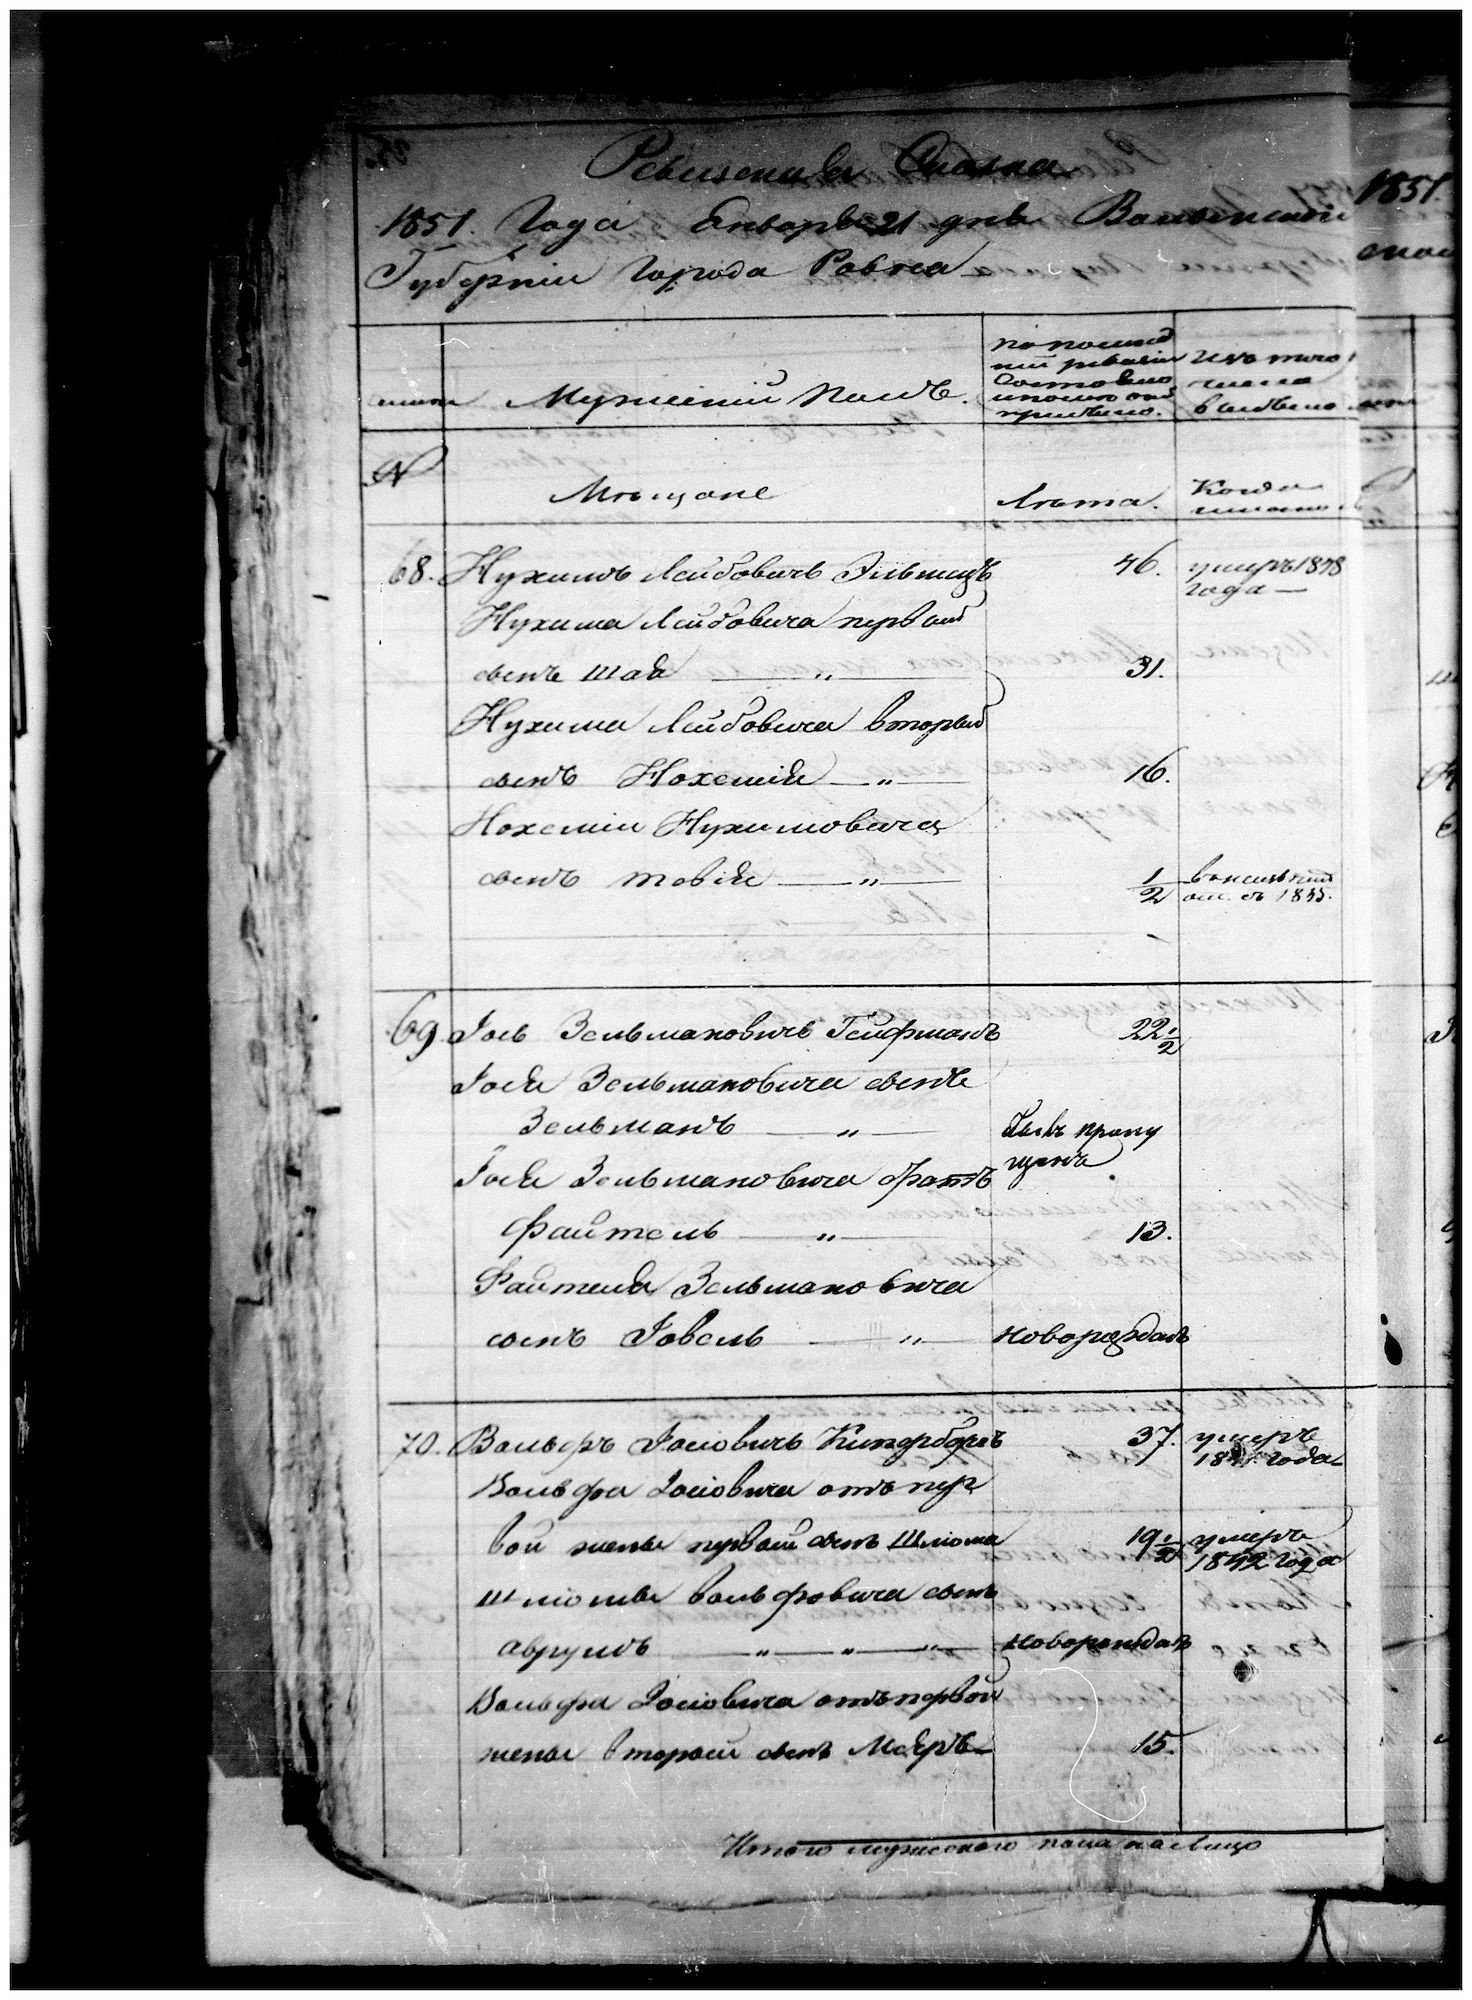 Ревизская Сказка
1851. Года Енваря 21 дня Волынской
Губерніи Города Ровна
Мужескій Полъ.
По послед
ней ревизіи
состояло
и после оной
прибыло.
Изъ того
числа
выбыло
№
Мѣщане
Лѣта.
Когда
именно
68. Нухимъ Лейбовичъ 46. умеръ 1848
года
Нухима Лейбовича первый
сынъ Шая " 31.
Нухима Лейбовича вторый
сынъ Нохемія " 16.
Нохеміи Нухимовича
сынъ Товія " 1/2
съ 1845.
69 Іось Зельмановичъ Гейфманъ 22 1/2
Іося Зельмановича сынъ
Зельманъ " былъ пропу
щенъ
Іося Зельмановича братъ
Файтель " 13.
Файтеля Зельмановича
сынъ Іовель " новорожданъ
70. Вольфъ Іосіовичъ 37. умеръ
года
Вольфа Іосіовича отъ пер
вой жены первый сынъ Шлиома 19 1/2 умеръ
1842 года
Шлиомы Вольфовича сынъ
Аврумъ " " " новорожданъ
Вольфа Іосіовича отъ первой
жены вторый сынъ Мееръ 15.
Итого мужескаго пола на Лицо
1851.